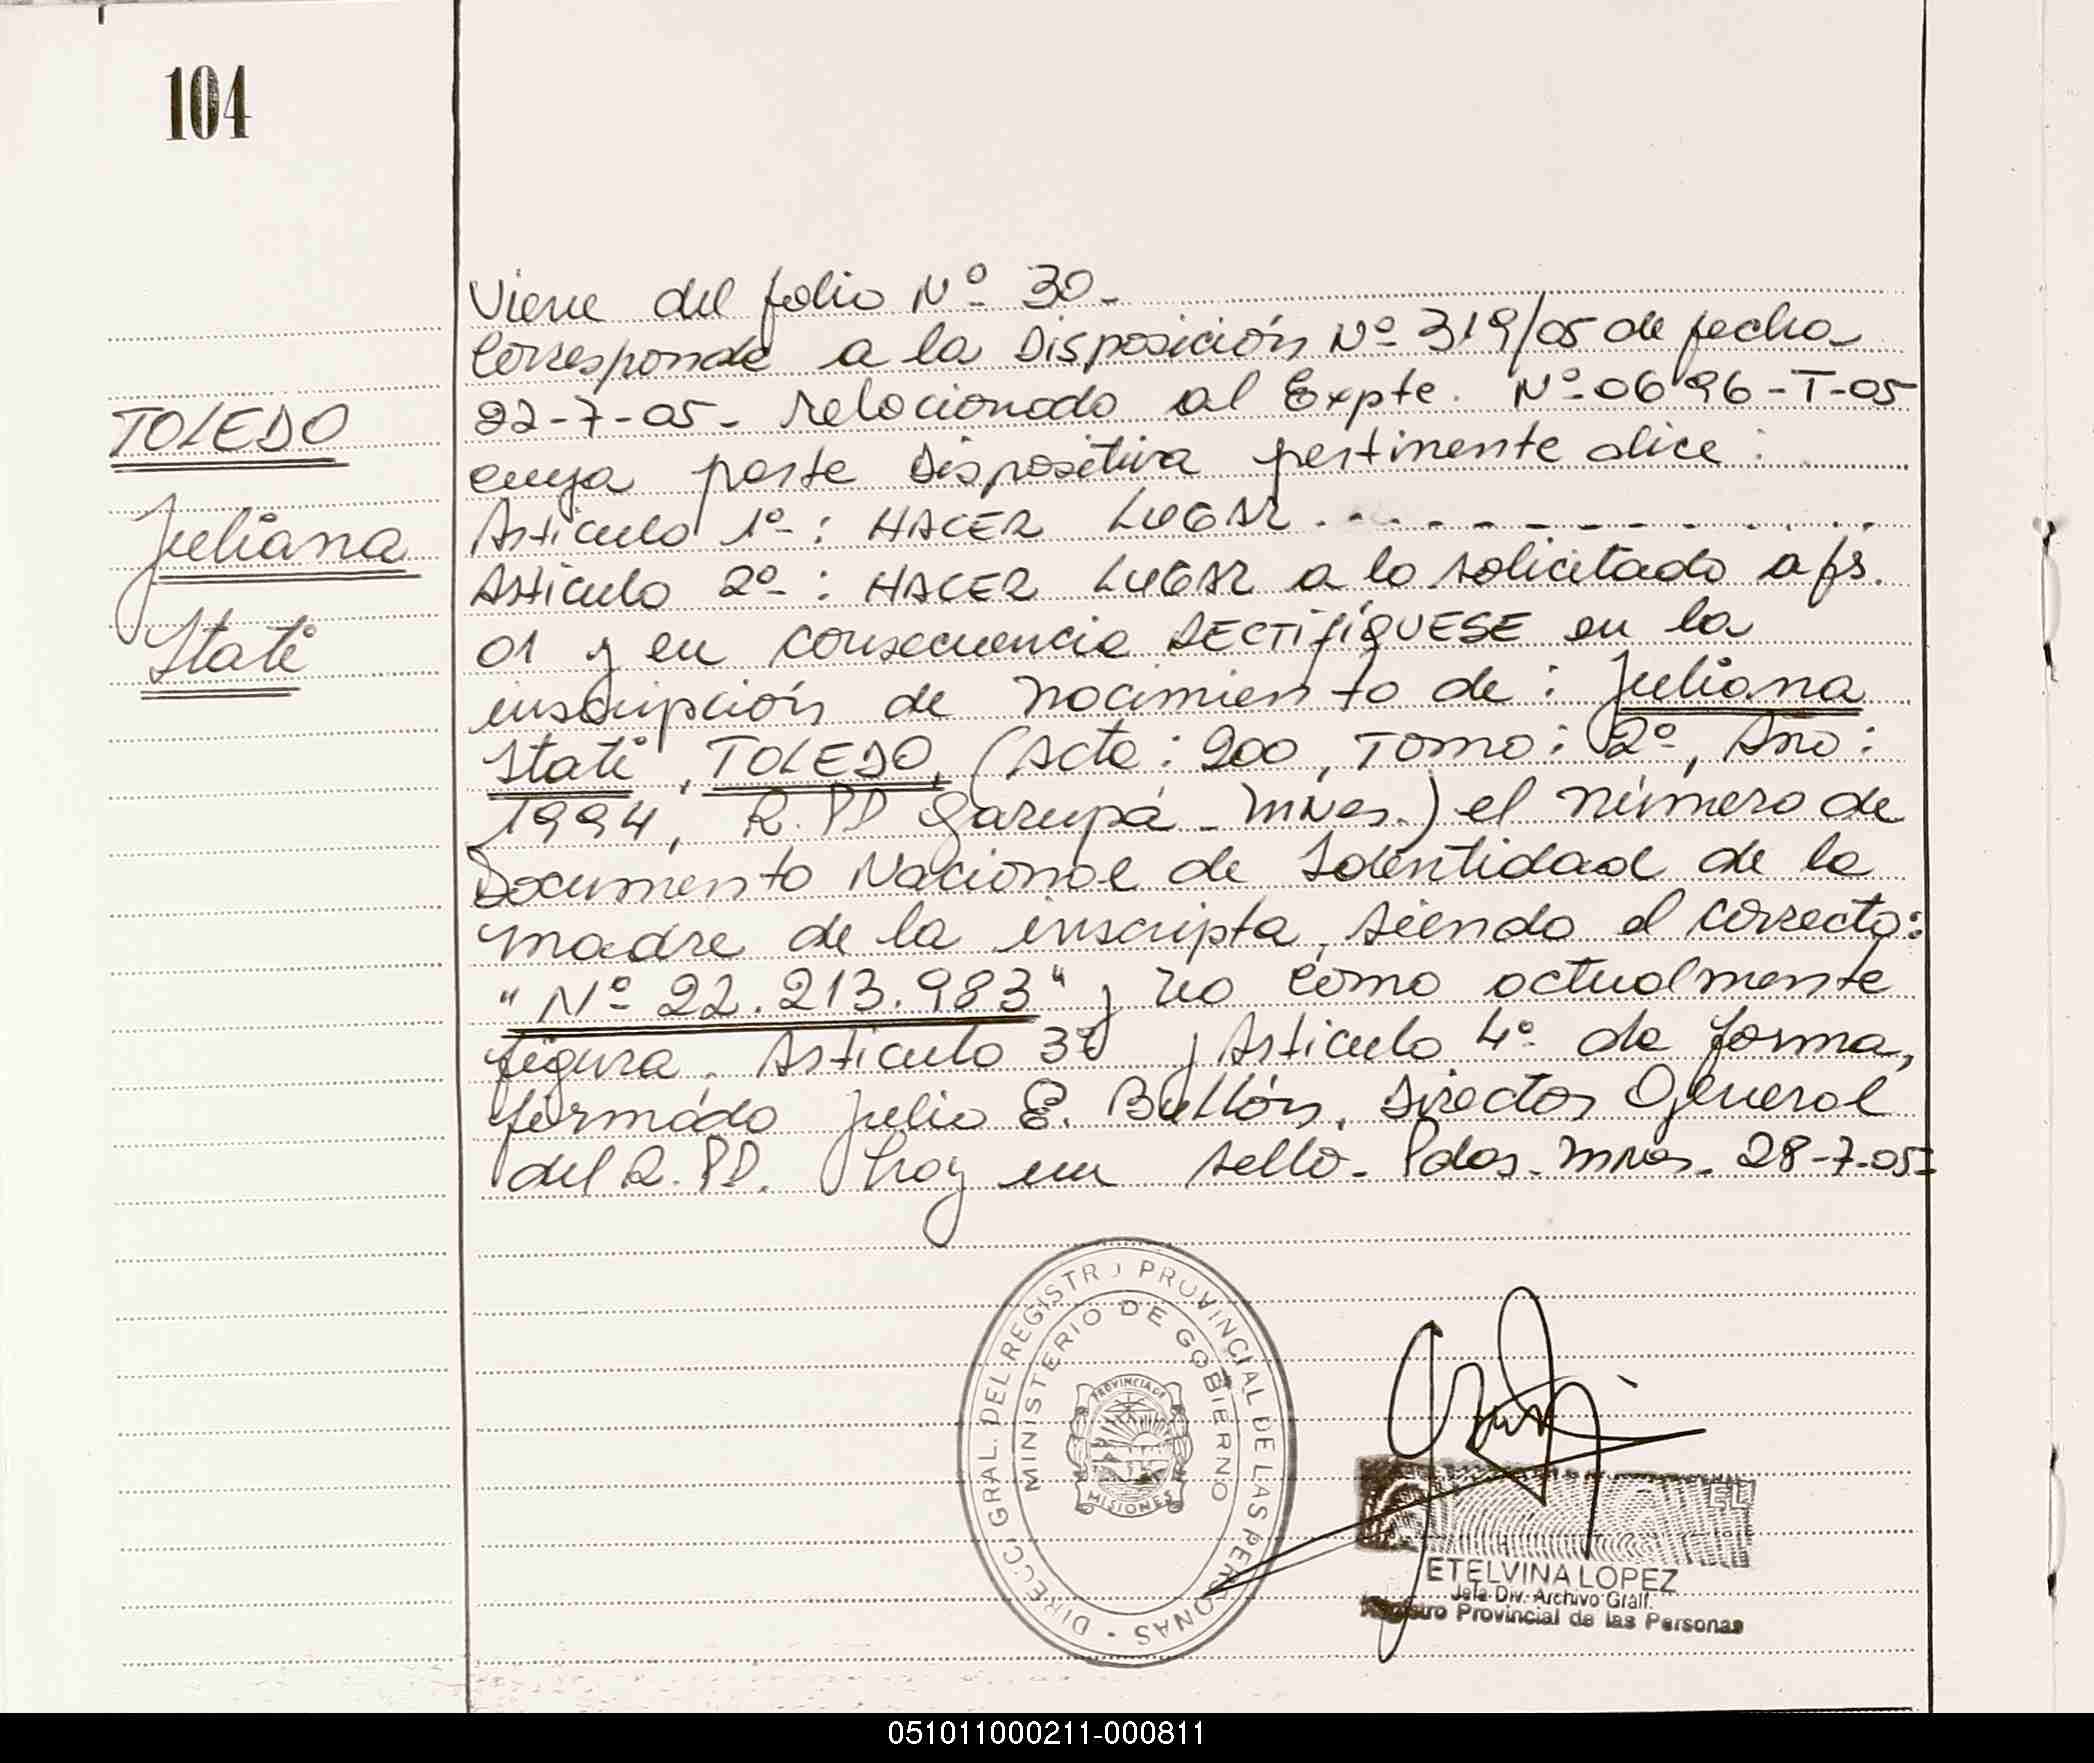 104
TOLEDO
Juliana
Stati
Viene del folio Nº 30-
Corresponde a la Disposición Nº 319/05 de fecha
22-7-05- relacionado al Expte. Nº 0696-T-05
cuya parte Dispositiva pertinente dice:
Articulo 1º-: HACER LUGAR
Articulo 2º-: HACER LUGAR a lo solicitado a fs.
01 y en consecuencia RECTIFÍQUESE en la
inscripción de nacimiento de: Juliana
Stati, TOLEDO, (Acta: 200, Tomo: 2º, Año:
1994, R.PP Garupá - Mnes.) el número de
Documento Nacional de Identidad de la
madre de la inscripta, siendo el correcto:
"Nº 22.213.983" y no como actualmente
figura. Articulo 3º y Articulo 4º de forma,
firmado Julio E. Bullón, Director General
del R.PP. hay un sello- Pdas- Mnes- 28-7-05-
DIRECC. GRAL. DEL REGISTRO PROVINCIAL DE LAS PERSONAS
MINISTERIO DE GOBIERNO
PROVINCIA DE
MISIONES
ETELVINA LOPEZ
Jefa Div. Archivo Gral.
Registro Provincial de las Personas
051011000211-000811